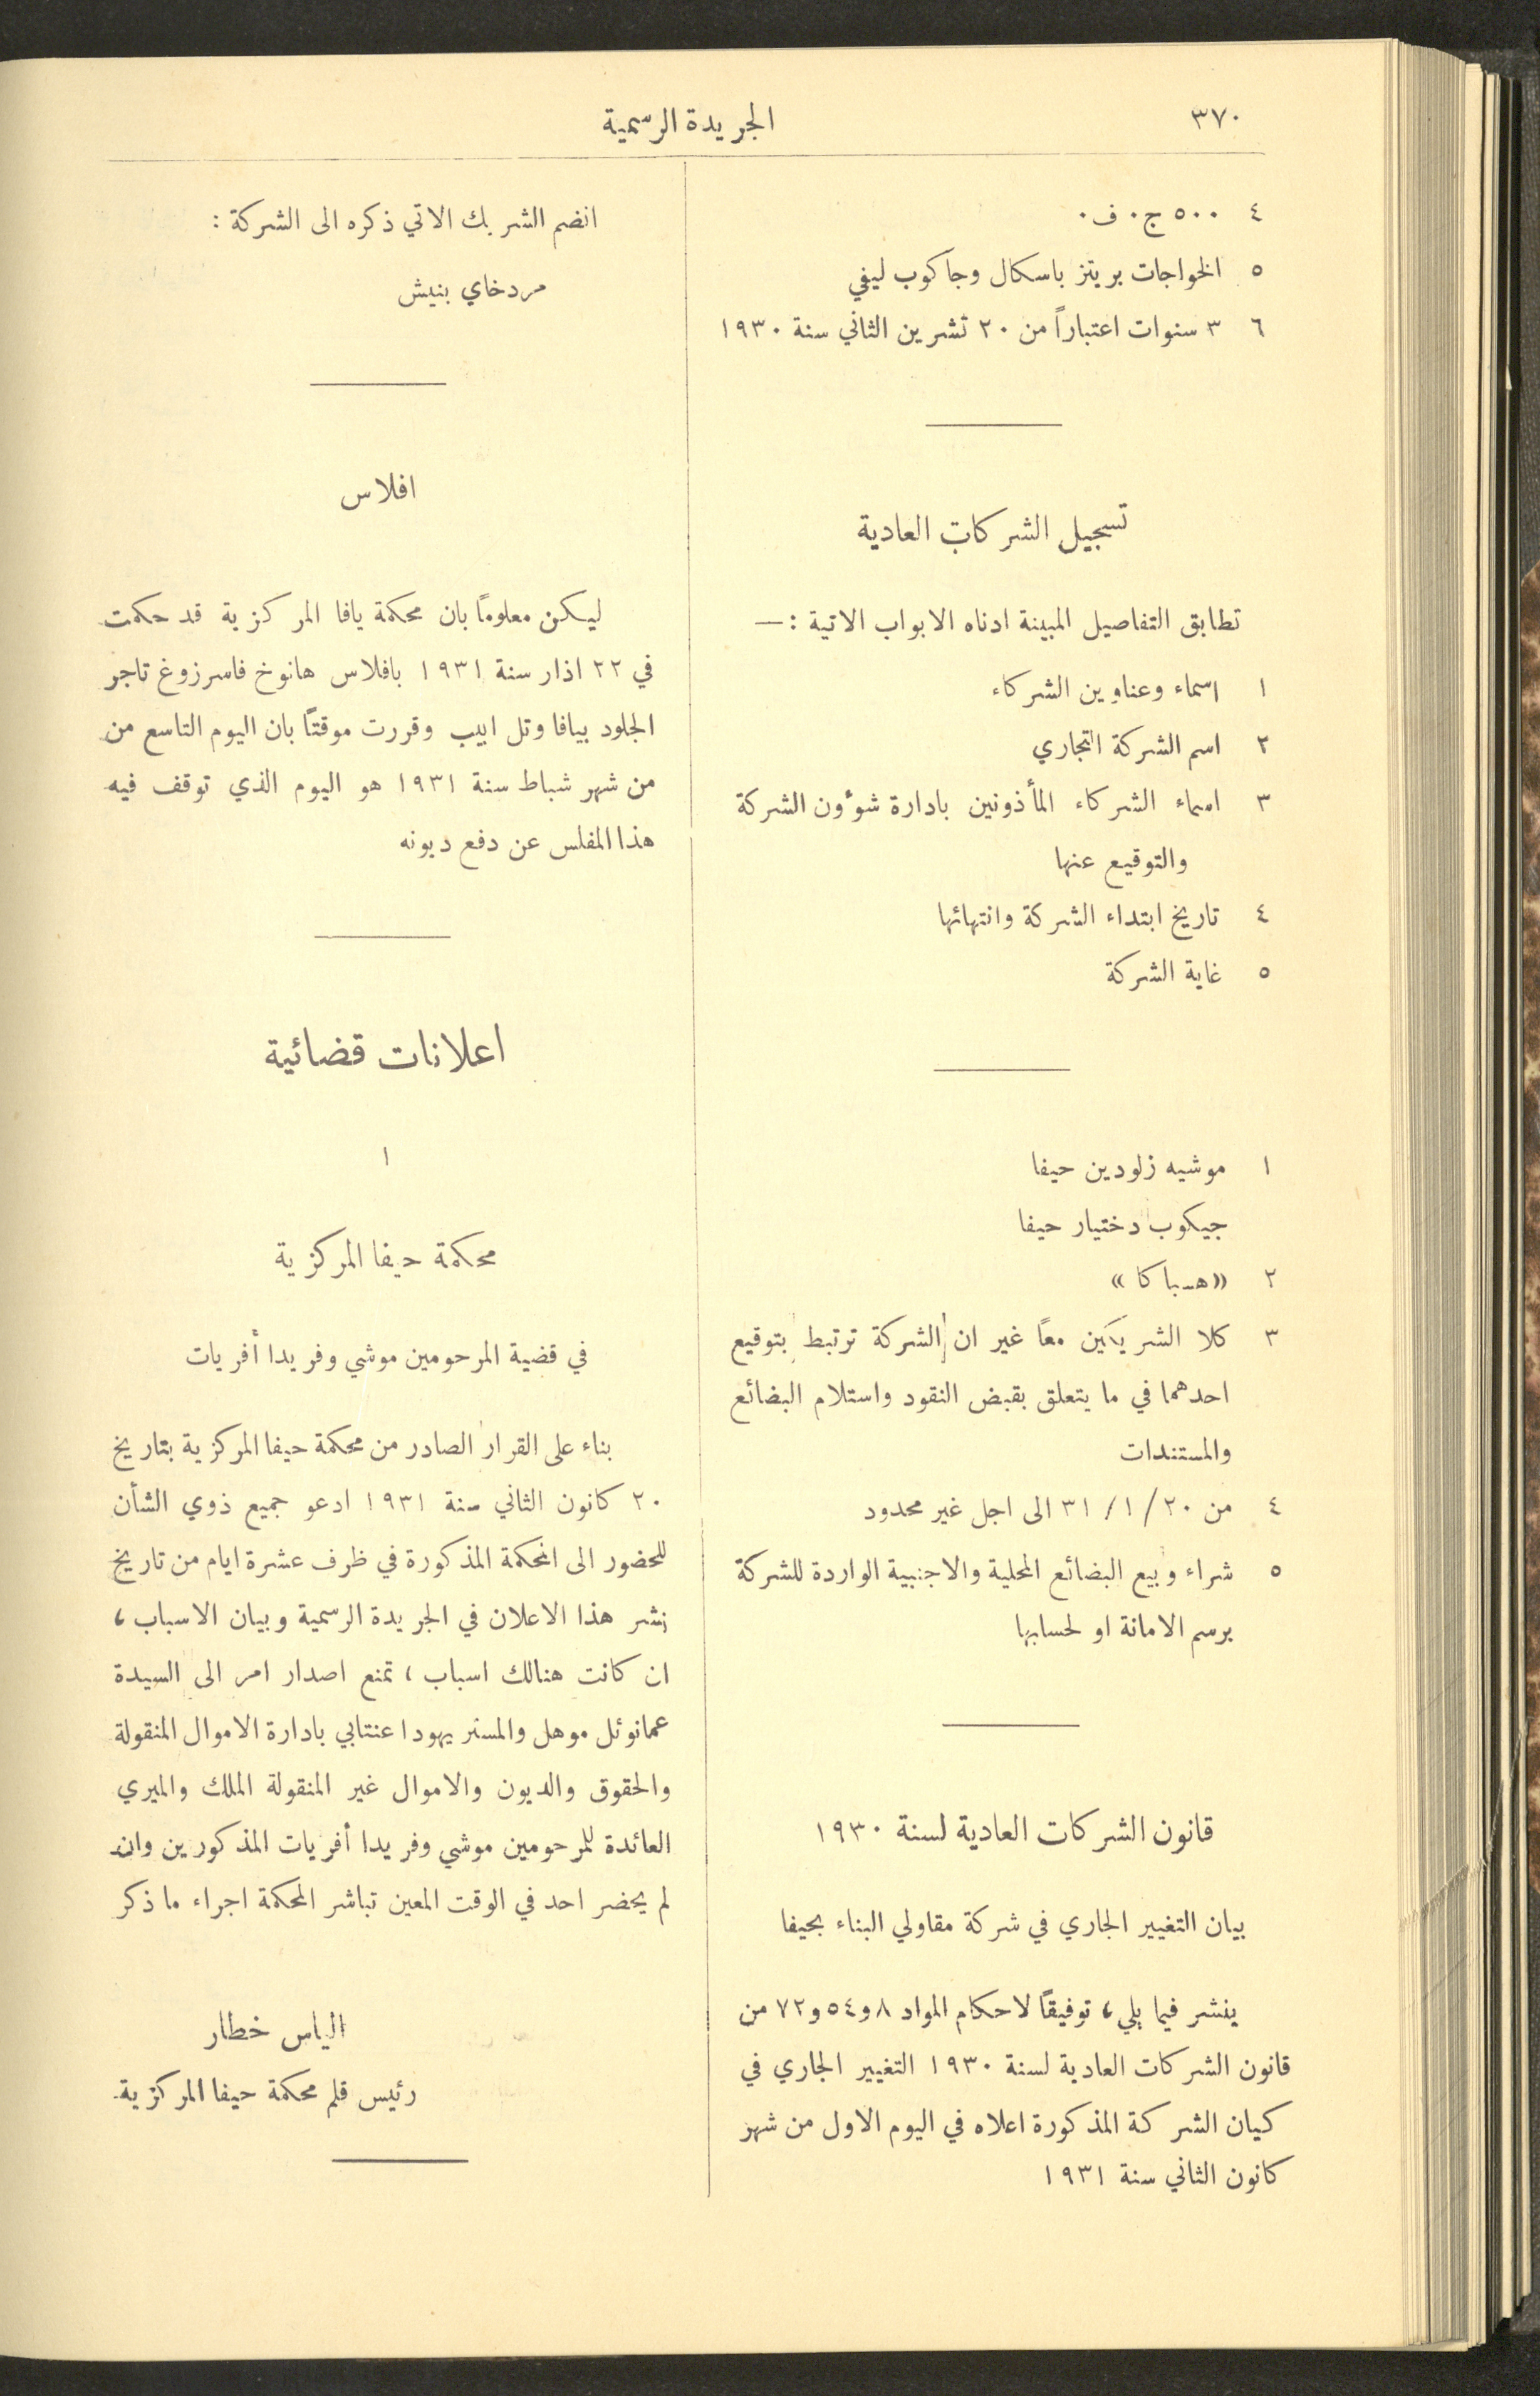 ٣٧٠
الجريدة الرسمية
٤ ٥٠٠ ج٠ ف٠
٥ الخواجات بريتز باسكال وجاكوب ليفي
٦ ٣ سنوات اعتباراً من ٢٠ تشرين الثاني سنة ١٩٣٠
تسجيل الشركات العادية
تطابق التفاصيل المبينة ادناه الابواب الاتية : —
١ اسماء وعناوين الشركاء
٢ اسم الشركة التجاري
٣ اسماء الشركاء المأذونين بادارة شؤون الشركة
والتوقيع عنها
٤ تاريخ ابتداء الشركة وانتهائها
٥ غاية الشركة
١ موشيه زلودين حيفا
جيكوب دختيار حيفا
٢ «هسباكا»
٣ كلا الشريكين معاً غير ان الشركة ترتبط بتوقيع
احدهما في ما يتعلق بقبض النقود واستلام البضائع
والمستندات
٤ من ٢٠/ ١/ ٣١ الى اجل غير محدود
٥ شراء وبيع البضائع المحلية والاجنبية الواردة للشركة
برسم الامانة او لحسابها
قانون الشركات العادية لسنة ١٩٣٠
بيان التغيير الجاري في شركة مقاولي البناء بحيفا
ينشر فيما يلي، توفيقاً لاحكام المواد ٨ و٥٤ و٧٢ من
قانون الشركات العادية لسنة ١٩٣٠ التغيير الجاري في
كيان الشركة المذكورة اعلاه في اليوم الاول من شهر
كانون الثاني سنة ١٩٣١
انضم الشريك الاتي ذكره الى الشركة :
مردخاي بنيش
افلاس
ليكن معلوماً بان محكمة يافا المركزية قد حكمت
في ٢٢ اذار سنة ١٩٣١ بافلاس هانوخ فاسرزوغ تاجر
الجلود بيافا وتل ابيب وقررت موقتاً بان اليوم التاسع من
من شهر شباط سنة ١٩٣١ هو اليوم الذي توقف فيه
هذا المفلس عن دفع ديونه
اعلانات قضائية
١
محكمة حيفا المركزية
في قضية المرحومين موشي وفريدا أفريات
بناء على القرار الصادر من محكمة حيفا المركزية بتاريخ
٢٠ كانون الثاني سنة ١٩٣١ ادعو جميع ذوي الشأن
للحضور الى المحكمة المذكورة في ظرف عشرة ايام من تاريخ
نشر هذا الاعلان في الجريدة الرسمية وبيان الاسباب،
ان كانت هنالك اسباب، تمنع اصدار امر الى السيدة
عمانوئل موهل والمستر يهودا عنتابي بادارة الاموال المنقولة
والحقوق والديون والاموال غير المنقولة الملك والميري
العائدة للمرحومين موشي وفريدا أفريات المذكورين وان
لم يحضر احد في الوقت المعين تباشر المحكمة اجراء ما ذكر
الياس خطار
رئيس قلم محكمة حيفا المركزية